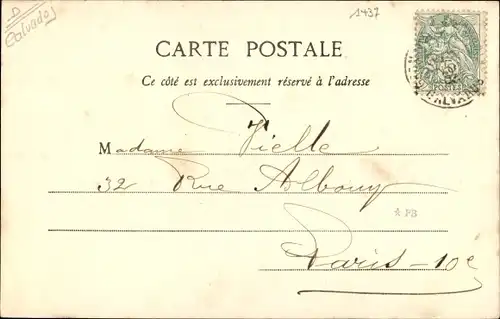 D
Calvados
1437
CARTE POSTALE
Ce côté est exclusivement réservé à l'adresse
Madame Vielle
32 Rue Albouy
☆ PB
Paris-10e
POSTES
CALVADOS